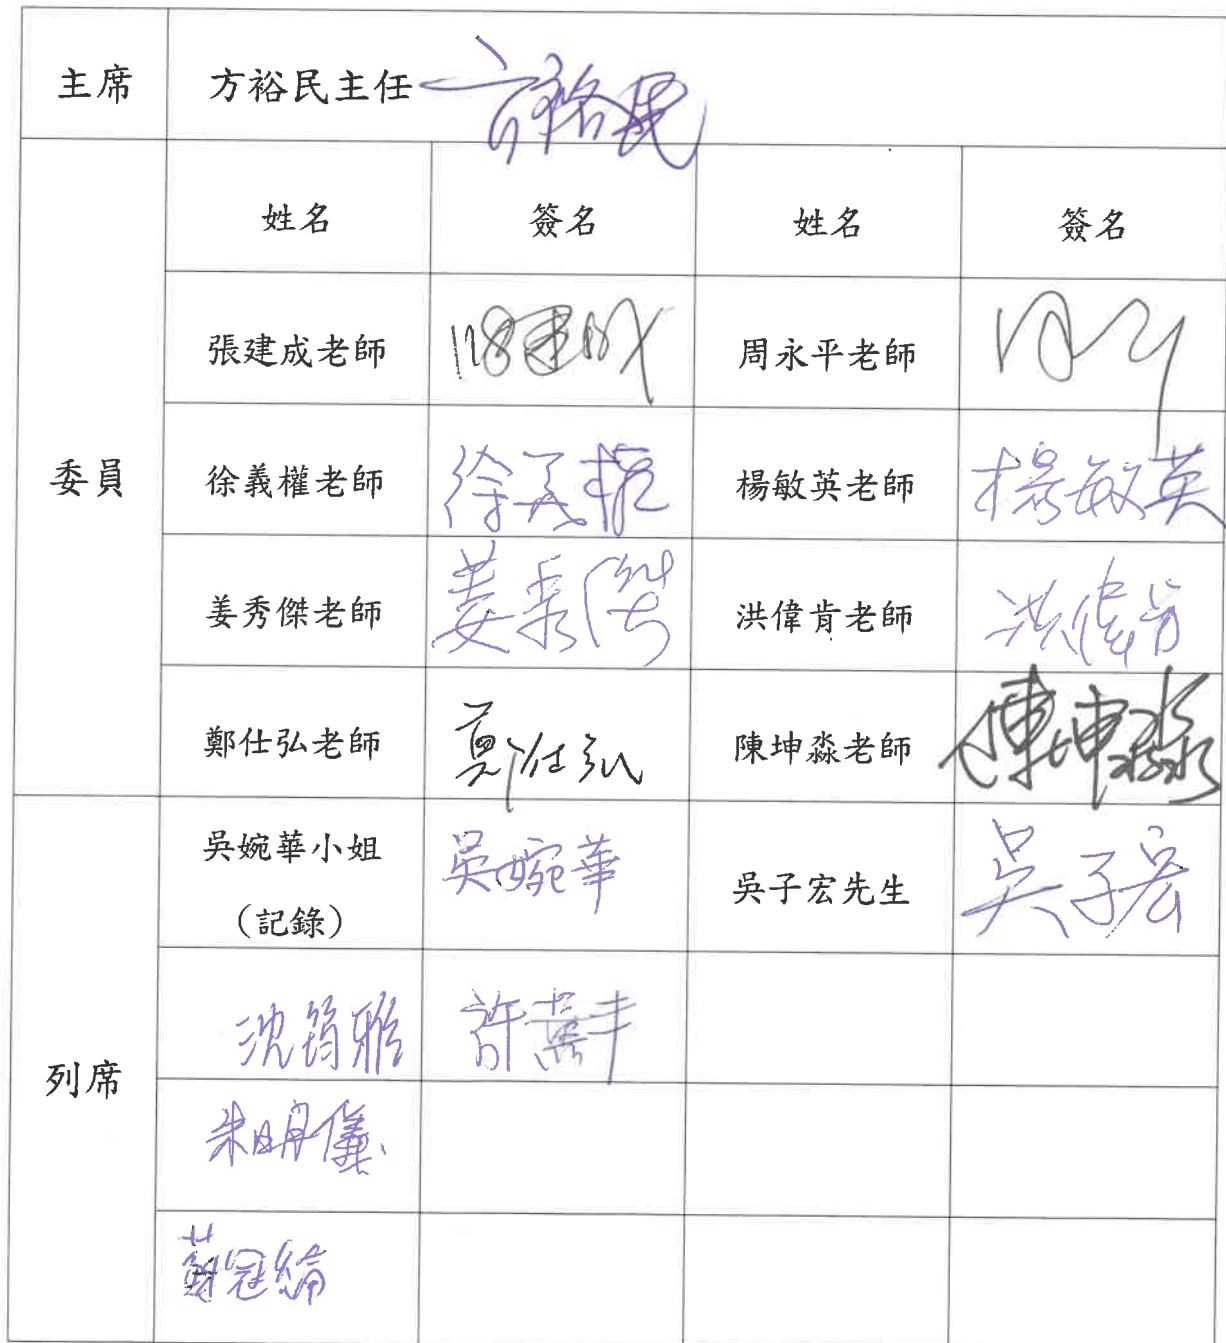 主席
方裕民主任 方裕民
姓名 簽名 姓名 簽名
張建成老師 張建成 周永平老師
委員 徐義權老師 徐義權 楊敏英老師 楊敏英
姜秀傑老師 姜秀傑 洪偉肯老師 洪偉肯
鄭仕弘老師 鄭仕弘 陳坤淼老師 陳坤淼
吳婉華小姐 吳婉華 吳子宏先生 吳子宏
(記錄)
列席 沈筠雅 許萬丰
朱明儀
蘇冠綸